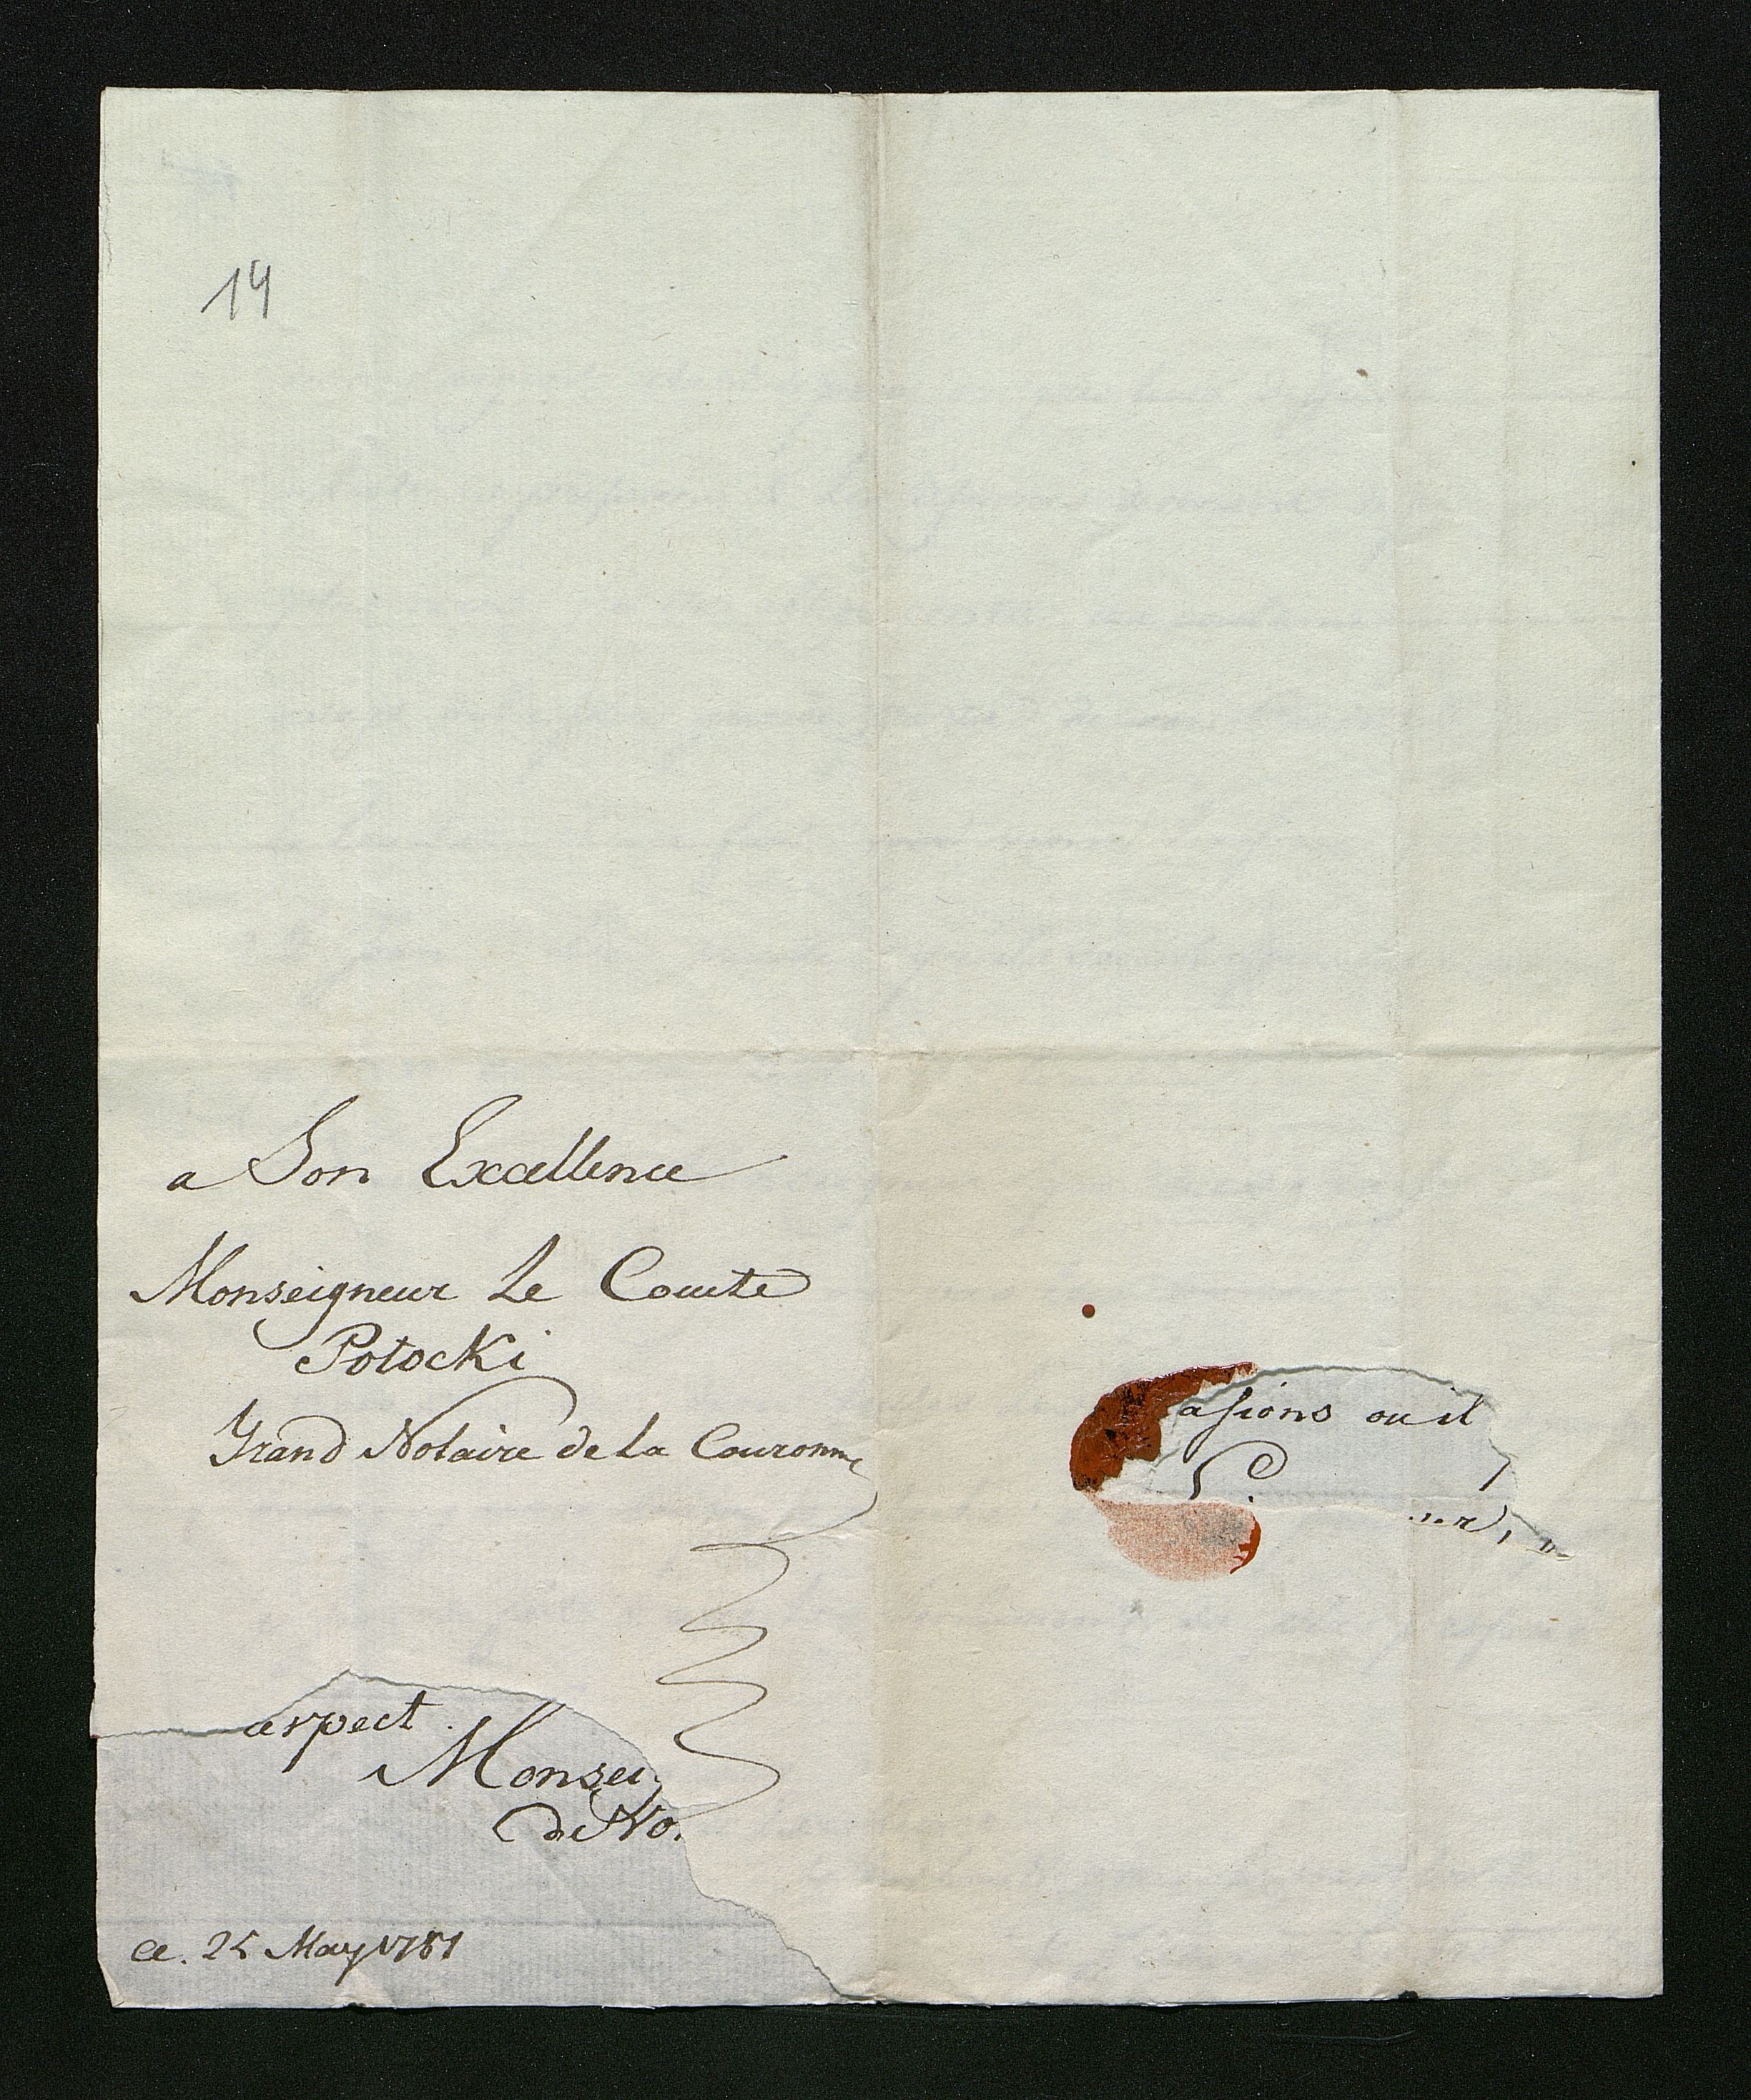 14
a Son Excellence
Monseigneur Le Comte
Potocki
Grand Notaire de La Couronne
asions ou il
espect.
Monsei
de Vo.
ce. 25 May 1781